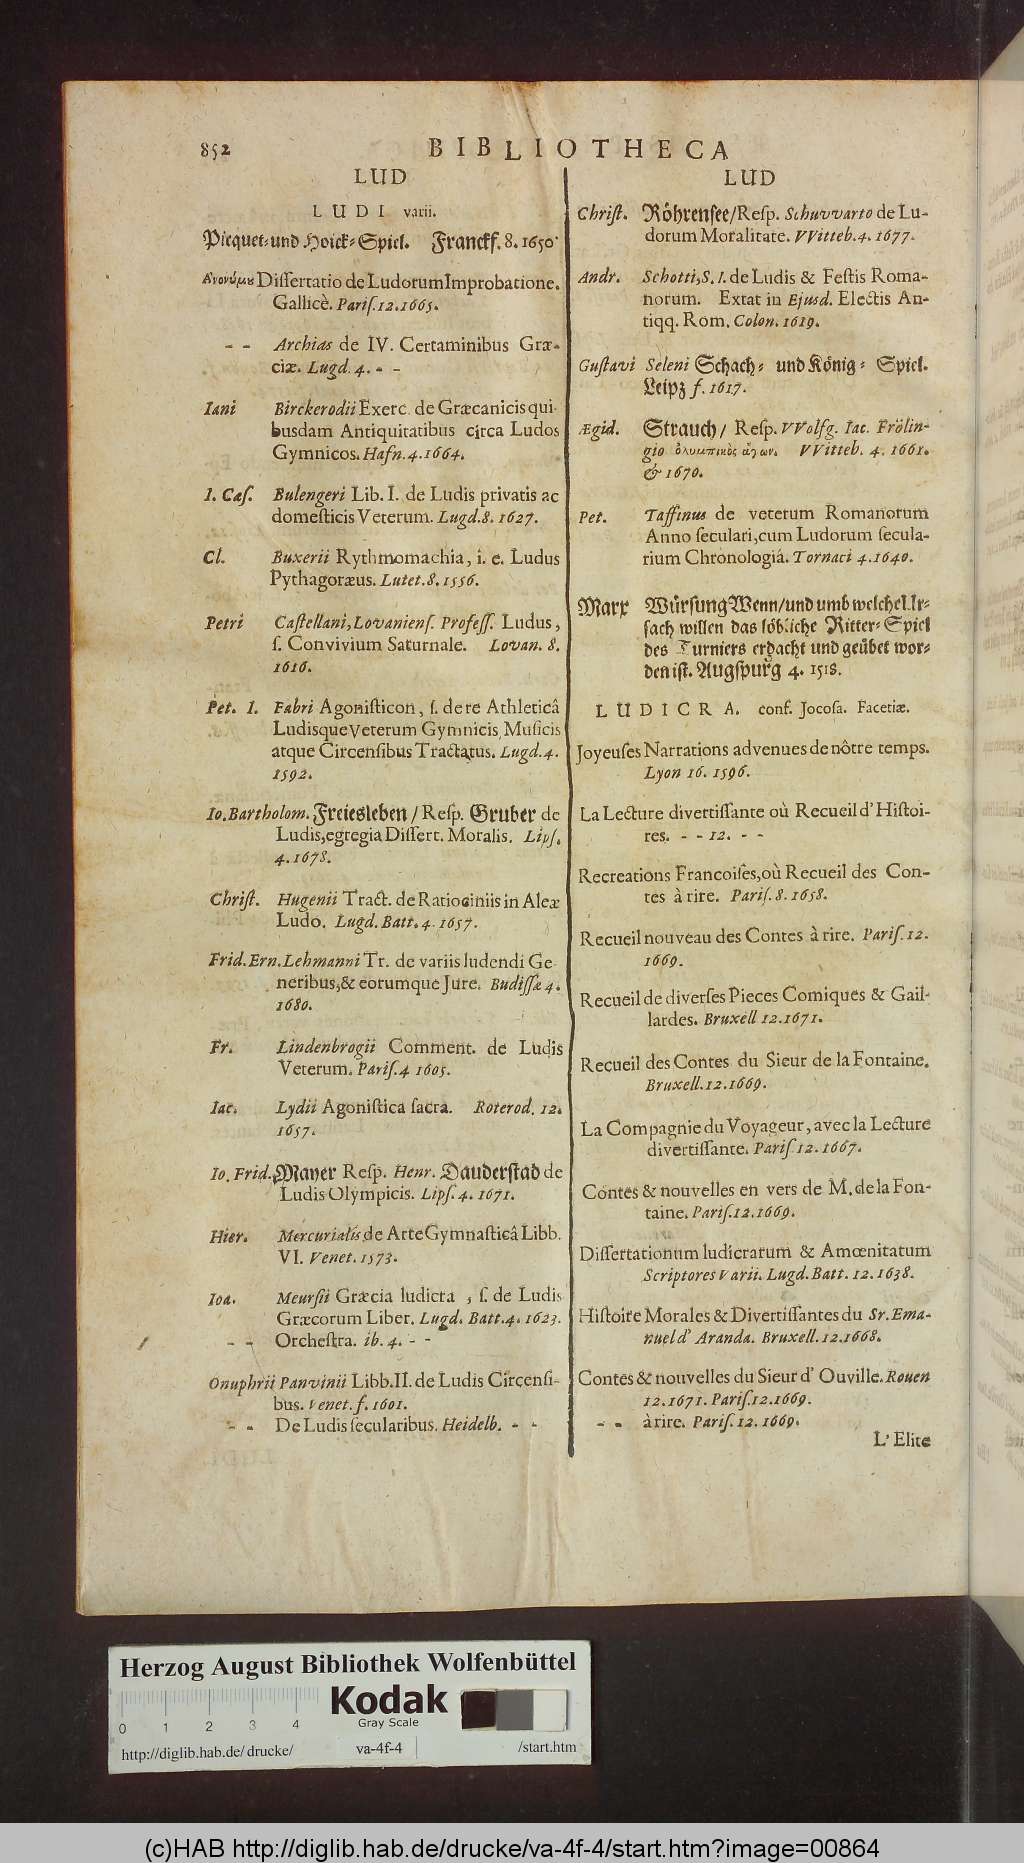 852
BIBLIOTHECA
LUD
LUDI varii.
Picquet- und Hoick-Spiel. Franckf. 8. 1650.
Ἀνονύμου Dissertatio de Ludorum Improbatione.
Gallicè. Paris. 12. 1665.
- - Archias de IV. Certaminibus Græ-
ciæ. Lugd. 4. - -
Iani Birckerodii Exerc. de Græcanicis qui-
busdam Antiquitatibus circa Ludos
Gymnicos. Hafn. 4. 1664.
I. Cæs. Bulengeri Lib. I. de Ludis privatis ac
domesticis Veterum. Lugd. 8. 1627.
Cl. Buxerii Rythmomachia, i. e. Ludus
Pythagoræus. Lutet. 8. 1556.
Petri Castellani, Lovaniens. Profess. Ludus,
s. Convivium Saturnale. Lovan. 8.
1616.
Pet. I. Fabri Agonisticon, s. de re Athleticâ
Ludisque Veterum Gymnicis, Musicis
atque Circensibus Tractatus. Lugd. 4.
1592.
Io. Bartholom. Freiesleben / Resp. Gruber de
Ludis, egregia Dissert. Moralis. Lips.
4. 1678.
Christ. Hugenii Tract. de Ratiociniis in Aleæ
Ludo. Lugd. Batt. 4. 1657.
Frid. Ern. Lehmanni Tr. de variis ludendi Ge-
neribus, & eorumque Jure. Budissæ 4.
1680.
Fr. Lindenbrogii Comment. de Ludis
Veterum. Paris. 4 1605.
Iac. Lydii Agonistica sacra. Roterod. 12.
1657.
Io. Frid. Mayer Resp. Henr. Dauderstad de
Ludis Olympicis. Lips. 4. 1671.
Hier. Mercurialis de Arte Gymnasticâ Libb.
VI. Venet. 1573.
Ioa. Meursii Græcia ludicra, s. de Ludis
Græcorum Liber. Lugd. Batt. 4. 1623.
- - Orchestra. ib. 4. - -
Onuphrii Panvinii Libb. II. de Ludis Circensi-
bus. Venet. f. 1601.
- - De Ludis secularibus. Heidelb. - -
LUD
Christ. Röhrensee / Resp. Schuvvarto de Lu-
dorum Moralitate. VVitteb. 4. 1677.
Andr. Schotti, S. I. de Ludis & Festis Roma-
norum. Extat in Ejusd. Electis An-
tiqq. Rom. Colon. 1619.
Gustavi Seleni Schach- und König-Spiel.
Leipz f. 1617.
Ægid. Strauch / Resp. VVolfg. Iac. Frölin-
gio ὀλυμπικὸς ἀγων. VVitteb. 4. 1661.
& 1670.
Pet. Taffinus de veterum Romanorum
Anno seculari, cum Ludorum secula-
rium Chronologiâ. Tornaci 4. 1640.
Marx Würsung Wenn / und umb welche Ur-
sach willen das löbliche Ritter-Spiel
des Turniers erdacht und geübet wor-
den ist. Augspurg 4. 1518.
LUDICRA. conf. Jocosa. Facetiæ.
Joyeuses Narrations advenues de nôtre temps.
Lyon 16. 1596.
La Lecture divertissante où Recueil d' Histoi-
res. - - 12. - -
Recreations Francoises, où Recueil des Con-
tes à rire. Paris. 8. 1658.
Recueil nouveau des Contes à rire. Paris. 12.
1669.
Recueil de diverses Pieces Comiques & Gail-
lardes. Bruxell 12. 1671.
Recueil des Contes du Sieur de la Fontaine.
Bruxell. 12. 1669.
La Compagnie du Voyageur, avec la Lecture
divertissante. Paris 12. 1667.
Contes & nouvelles en vers de M. de la Fon-
taine. Paris. 12. 1669.
Dissertationum ludicrarum & Amœnitatum
Scriptores Varii. Lugd. Batt. 12. 1638.
Histoire Morales & Divertissantes du Sr. Ema-
nuel d' Aranda. Bruxell. 12. 1668.
Contes & nouvelles du Sieur d' Ouville. Rouen
12. 1671. Paris. 12. 1669.
- - à rire. Paris. 12. 1669.
L' Elite
Herzog August Bibliothek Wolfenbüttel
Kodak
Gray Scale
0 1 2 3 4
http://diglib.hab.de/drucke/ va-4f-4 /start.htm
(c)HAB http://diglib.hab.de/drucke/va-4f-4/start.htm?image=00864